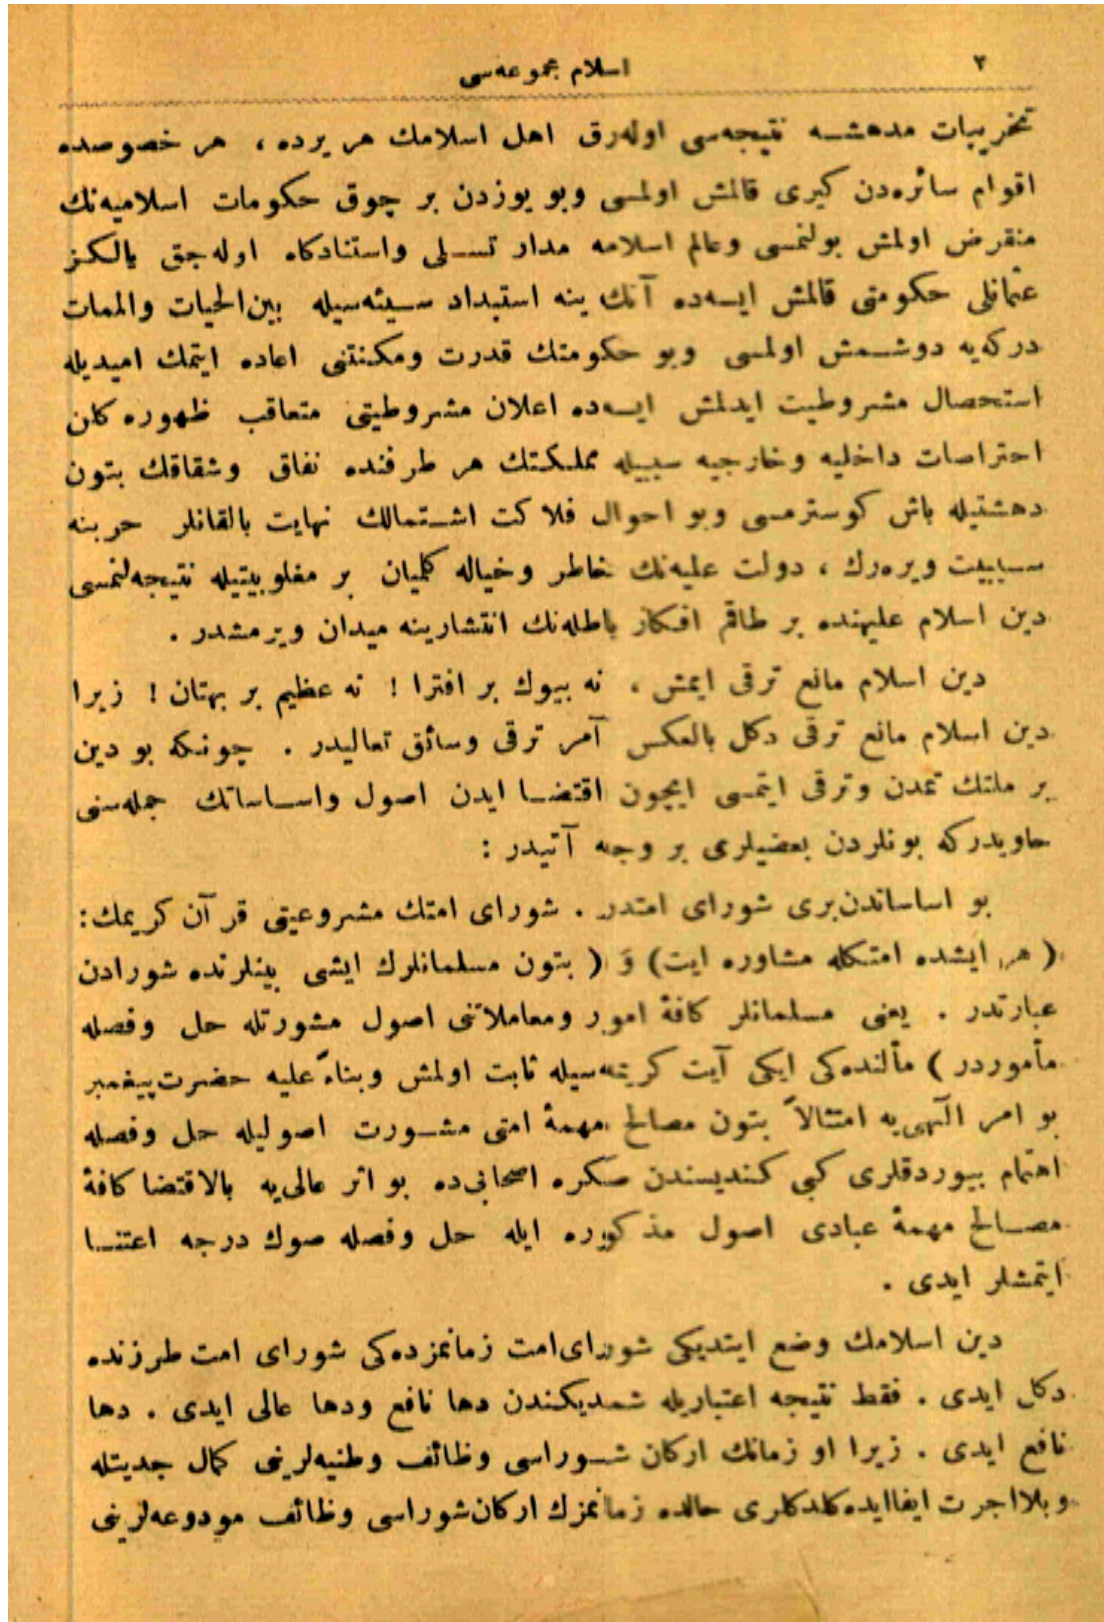 اسلام مجموعه‌سی ٣
تخریبات مدهشه نتیجه‌سی اوله‌رق اهل اسلامك هر یرده ، هر خصوصده
اقوام سائره‌دن كیری قالمش اولمسی وبو یوزدن بر چوق حكومات اسلامیه‌نك
منقرض اولمش بولنمسی وعالم اسلامه مدار تسلی واستنادكاه اوله‌جق یالكز
عثمانلی حكومتی قالمش ایسه‌ده آنك ینه استبداد سیئه‌سیله بین‌الحیات والممات
دركه‌یه دوشمش اولمسی وبو حكومتك قدرت ومكنتنی اعاده ایتمك امیدیله
استحصال مشروطیت ایدلمش ایسه‌ده اعلان مشروطیتی متعاقب ظهوره كلن
احتراصات داخلیه وخارجیه سببیله مملكتك هر طرفنده نفاق وشقاقك بتون
دهشتیله باش كوسترمسی وبو احوال فلاكت اشتمالك نهایت بالقانلر حربنه
سببیت ویره‌رك ، دولت علیه‌نك خاطر وخیاله كلمیان بر مغلوبیتیله نتیجه‌لنمسی
دین اسلام علیهنده بر طاقم افكار باطله‌نك انتشارینه میدان ویرمشدر .
دین اسلام مانع ترقی ایمش ، نه بیوك بر افترا ! نه عظیم بر بهتان ! زیرا
دین اسلام مانع ترقی دكل بالعكس آمر ترقی وسائق تعالیدر . چونكه بو دین
بر ملتك تمدن وترقی ایتمسی ایچون اقتضا ایدن اصول واساساتك جمله‌سنی
حاویدركه بونلردن بعضیلری بر وجه آتیدر :
بو اساساتدن‌بری شورای امتدر . شورای امتك مشروعیتی قرآن كریمك :
( هر ایشده امتكله مشاوره ایت) وَ ( بتون مسلمانلرك ایشی بینلرنده شورادن
عبارتدر . یعنی مسلمانلر كافهٔ امور ومعاملاتنی اصول مشورتله حل وفصله
مأموردر ) مآلنده‌كی ایكی آیت كریمه‌سیله ثابت اولمش وبناءً علیه حضرت پیغمبر
بو امر الٓهی‌یه امتثالاً بتون مصالح مهمهٔ امتی مشورت اصولیله حل وفصله
اهتمام بیوردقلری كبی كندیسندن صكره اصحابی‌ده بو اثر عالی‌یه بالاقتضا كافهٔ
مصالح مهمهٔ عبادی اصول مذكوره ایله حل وفصله صوك درجه اعتنا
ایتمشلر ایدی .
دین اسلامك وضع ایتدیكی شورای‌امت زمانمزده‌كی شورای امت طرزنده
دكل ایدی . فقط نتیجه اعتباریله شمدیكندن دها نافع ودها عالی ایدی . دها
نافع ایدی . زیرا او زمانك اركان شوراسی وظائف وطنیه‌لرینی كمال جدیتله
وبلااجرت ایفاایده‌كلدكلری حالده زمانمزك اركان‌شوراسی وظائف مودوعه‌لرینی